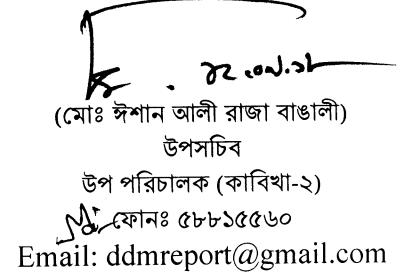 ১২.০৭.১৮
(মোঃ ঈশান আলী রাজা বাঙালী)
উপসচিব
উপ পরিচালক (কাবিখা-২)
ফোনঃ ৫৮৮১৫৫৬০
Email: ddmreport@gmail.com